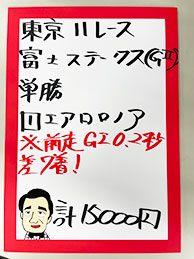 東京11レース
富士ステークス(GⅡ)
単勝
11エアロロノア
※前走GⅠ0.2秒
差7着!
計15000円